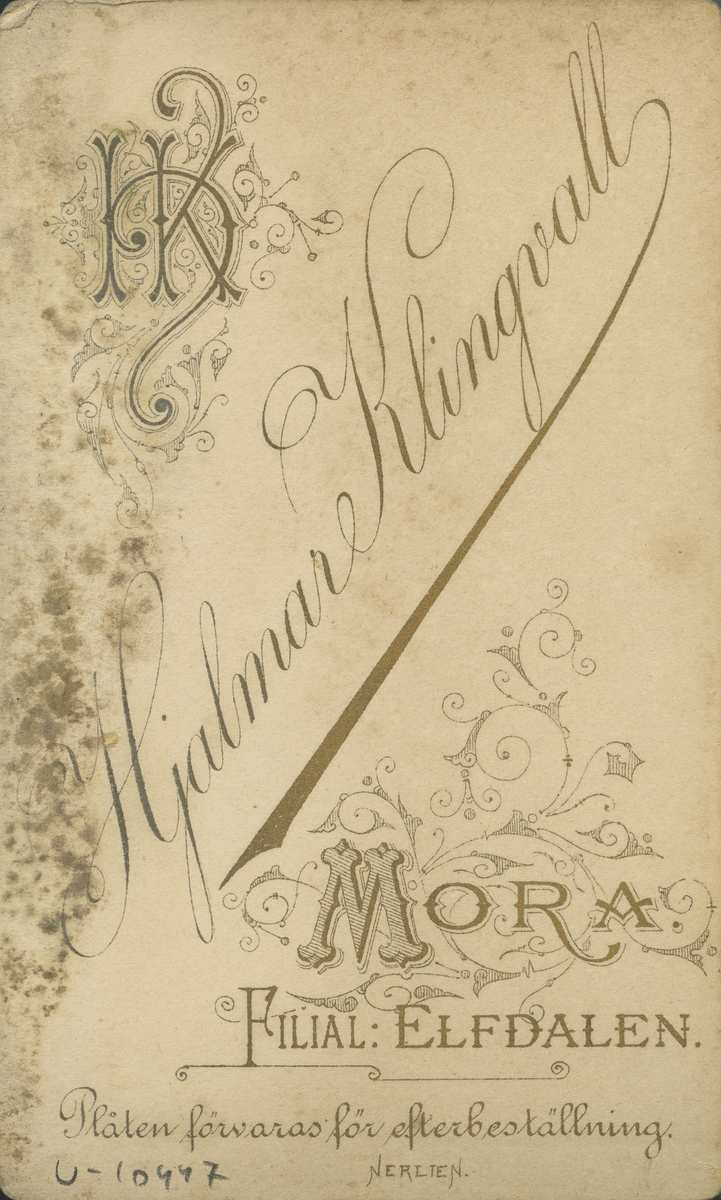 HK
Hjalmar Klingvall
MORA.
FILIAL: ELFDALEN.
Plåten förvaras för efterbeställning.
U-10447
NERLIEN.